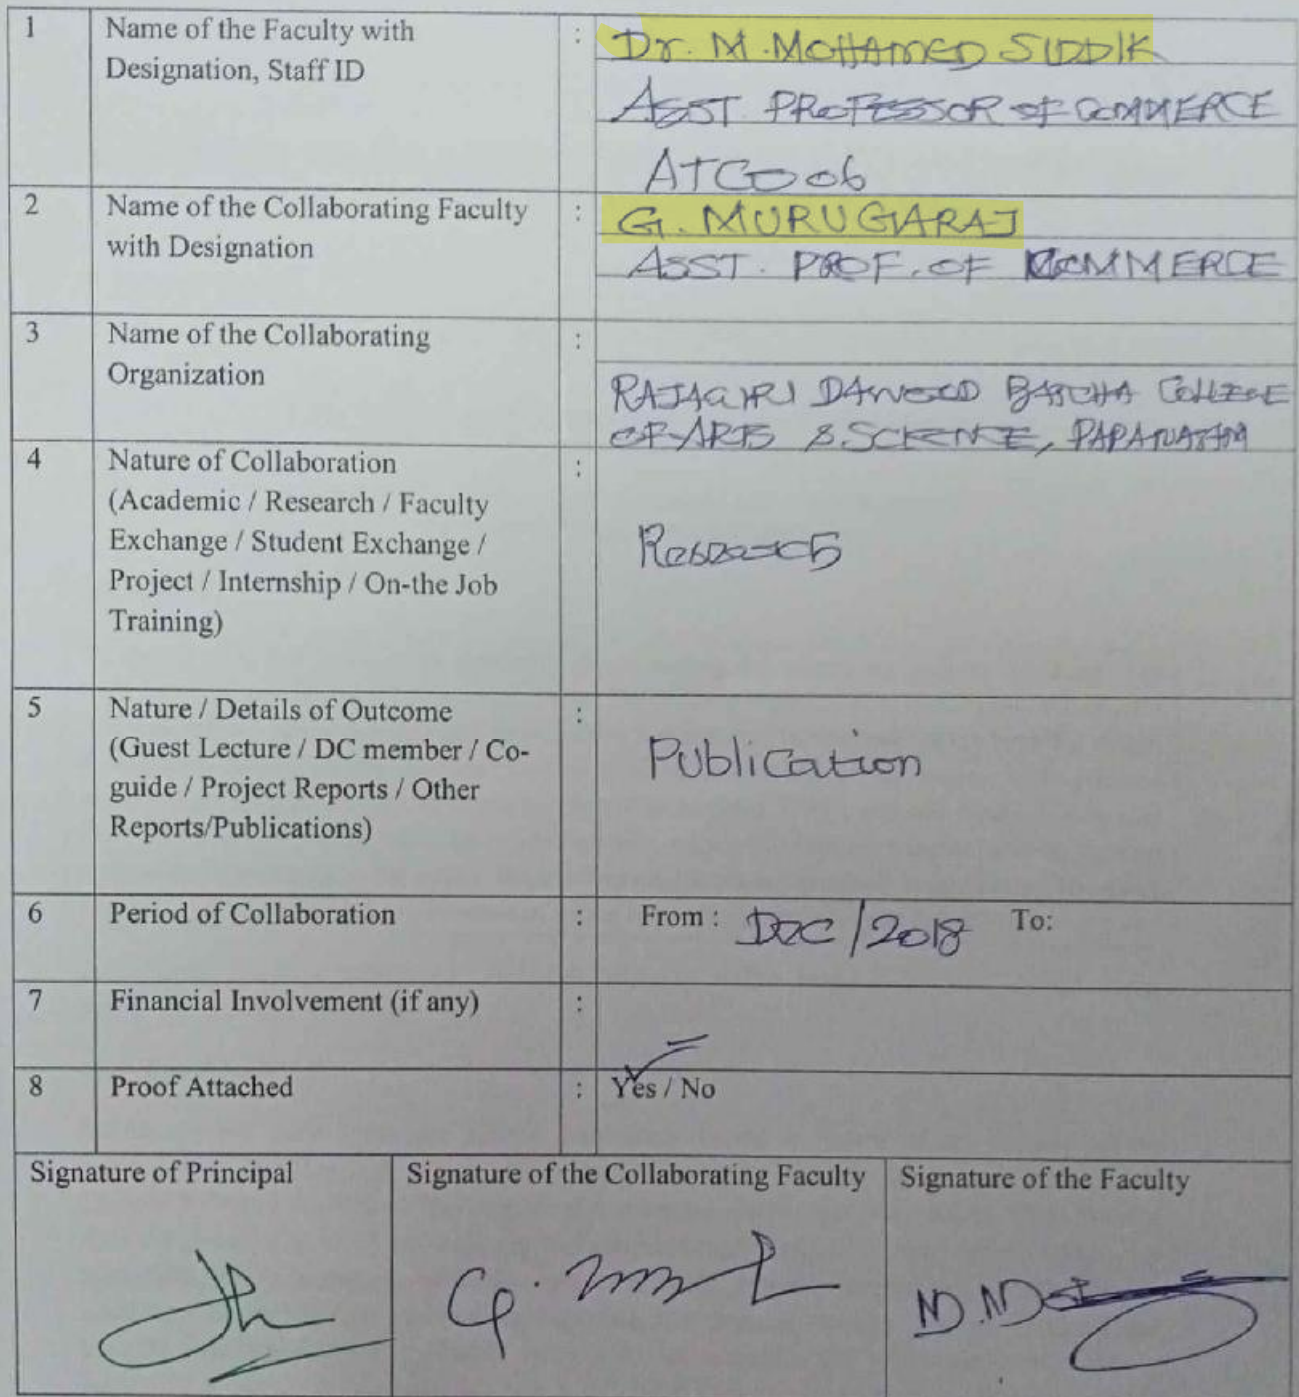 1 Name of the Faculty with : Dr. M. MOHAMED SIDDIK
Designation, Staff ID
ASST PROFESSOR OF COMMERCE
ATCO06
2 Name of the Collaborating Faculty : G. MURUGARAJ
with Designation ASST. PROF. OF COMMERCE
3 Name of the Collaborating :
Organization
RAJAGIRI DAWOOD BATCHA COLLEGE
OF ARTS & SCIENCE, PAPANASAM
4 Nature of Collaboration :
(Academic / Research / Faculty
Exchange / Student Exchange / Research
Project / Internship / On-the Job
Training)
5 Nature / Details of Outcome :
(Guest Lecture / DC member / Co- Publication
guide / Project Reports / Other
Reports/Publications)
6 Period of Collaboration : From : Dec/2018 To:
7 Financial Involvement (if any) :
8 Proof Attached : Yes / No
Signature of Principal Signature of the Collaborating Faculty Signature of the Faculty